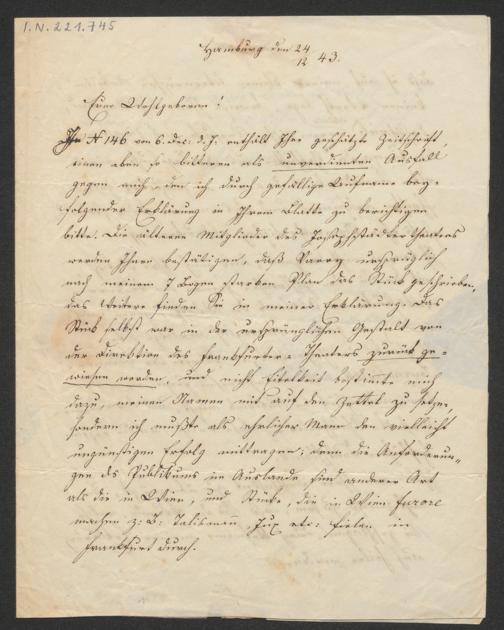 I.N. 221.745
Hamburg den 24/12 43.
Euer Wohlgeboren!
In N 146 vom 6. Dec: d. J. enthält Ihre geschätzte Zeitschrift,
einen eben so bitteren als unverdienten Ausfall
gegen mich, den ich durch gefällige Aufnahme bey-
folgender Erklärung in Ihrem Blatte zu berichtigen
bitte. Die älteren Mitglieder des Josephstädter Theaters
werden Ihnen bestätigen, daß Varry ursprünglich
nach meinem 7 Bogen starken Plan das Stück geschrieben,
das Weitere finden Sie in meiner Erklärung. Das
Stück selbst war in der ursprünglichen Gestalt von
der Direktion des Frankfurter-Theaters zurück ge-
wiesen worden, und nicht Eitelkeit bestimte mich
dazu, meinen Namen mit auf den Zettel zu setzen,
sondern ich mußte als ehrlicher Mann den vielleicht
ungünstigen Erfolg mittragen; denn die Anforderun-
gen des Publikums im Auslande sind anderer Art
als die in Wien, und Stücke, die in Wien furore
machen z: B: Talisman, Jux etc: fielen in
Frankfurt durch.